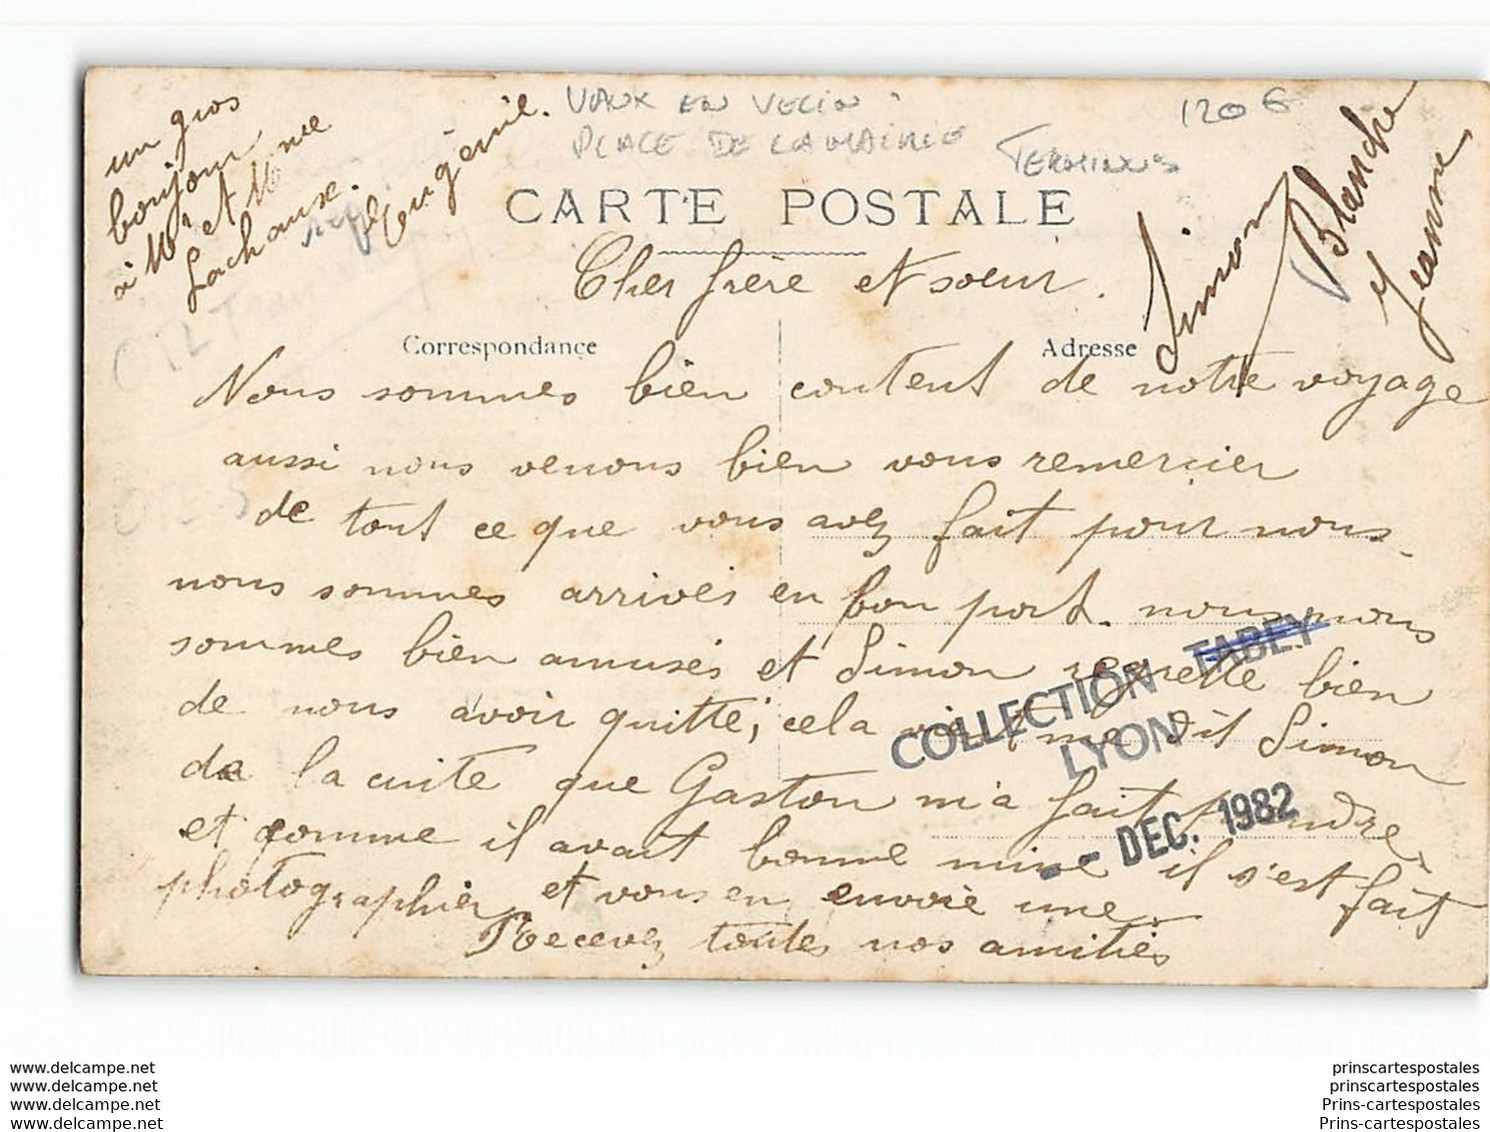 un gros
bonjour
à Mr et Mme
Lachause.
Eugénie.
VAUX EN VELIN
PLACE DE LA MAIRIE
TERMINUS
120 €
CARTE POSTALE
Simon
Blanche
Jeanne
Cher frère et soeur.
Correspondance
Adresse
Nous sommes bien content de notre voyage
aussi nous venons bien vous remercier
de tout ce que vous avez fait pour nous.
nous sommes arrivés en bon port. nous nous
sommes bien amusés et Simon regrette bien
de nous avoir quitté; cela vient me dit Simon
de la cuite que Gaston m'a fait prendre
et comme il avait bonne mine il s'est fait
photographier et vous en envoie une
Recevez toutes nos amitiés
COLLECTION TABEY
LYON
- DEC. 1982
www.delcampe.net
www.delcampe.net
www.delcampe.net
www.delcampe.net
prinscartespostales
prinscartespostales
Prins-cartespostales
Prins-cartespostales